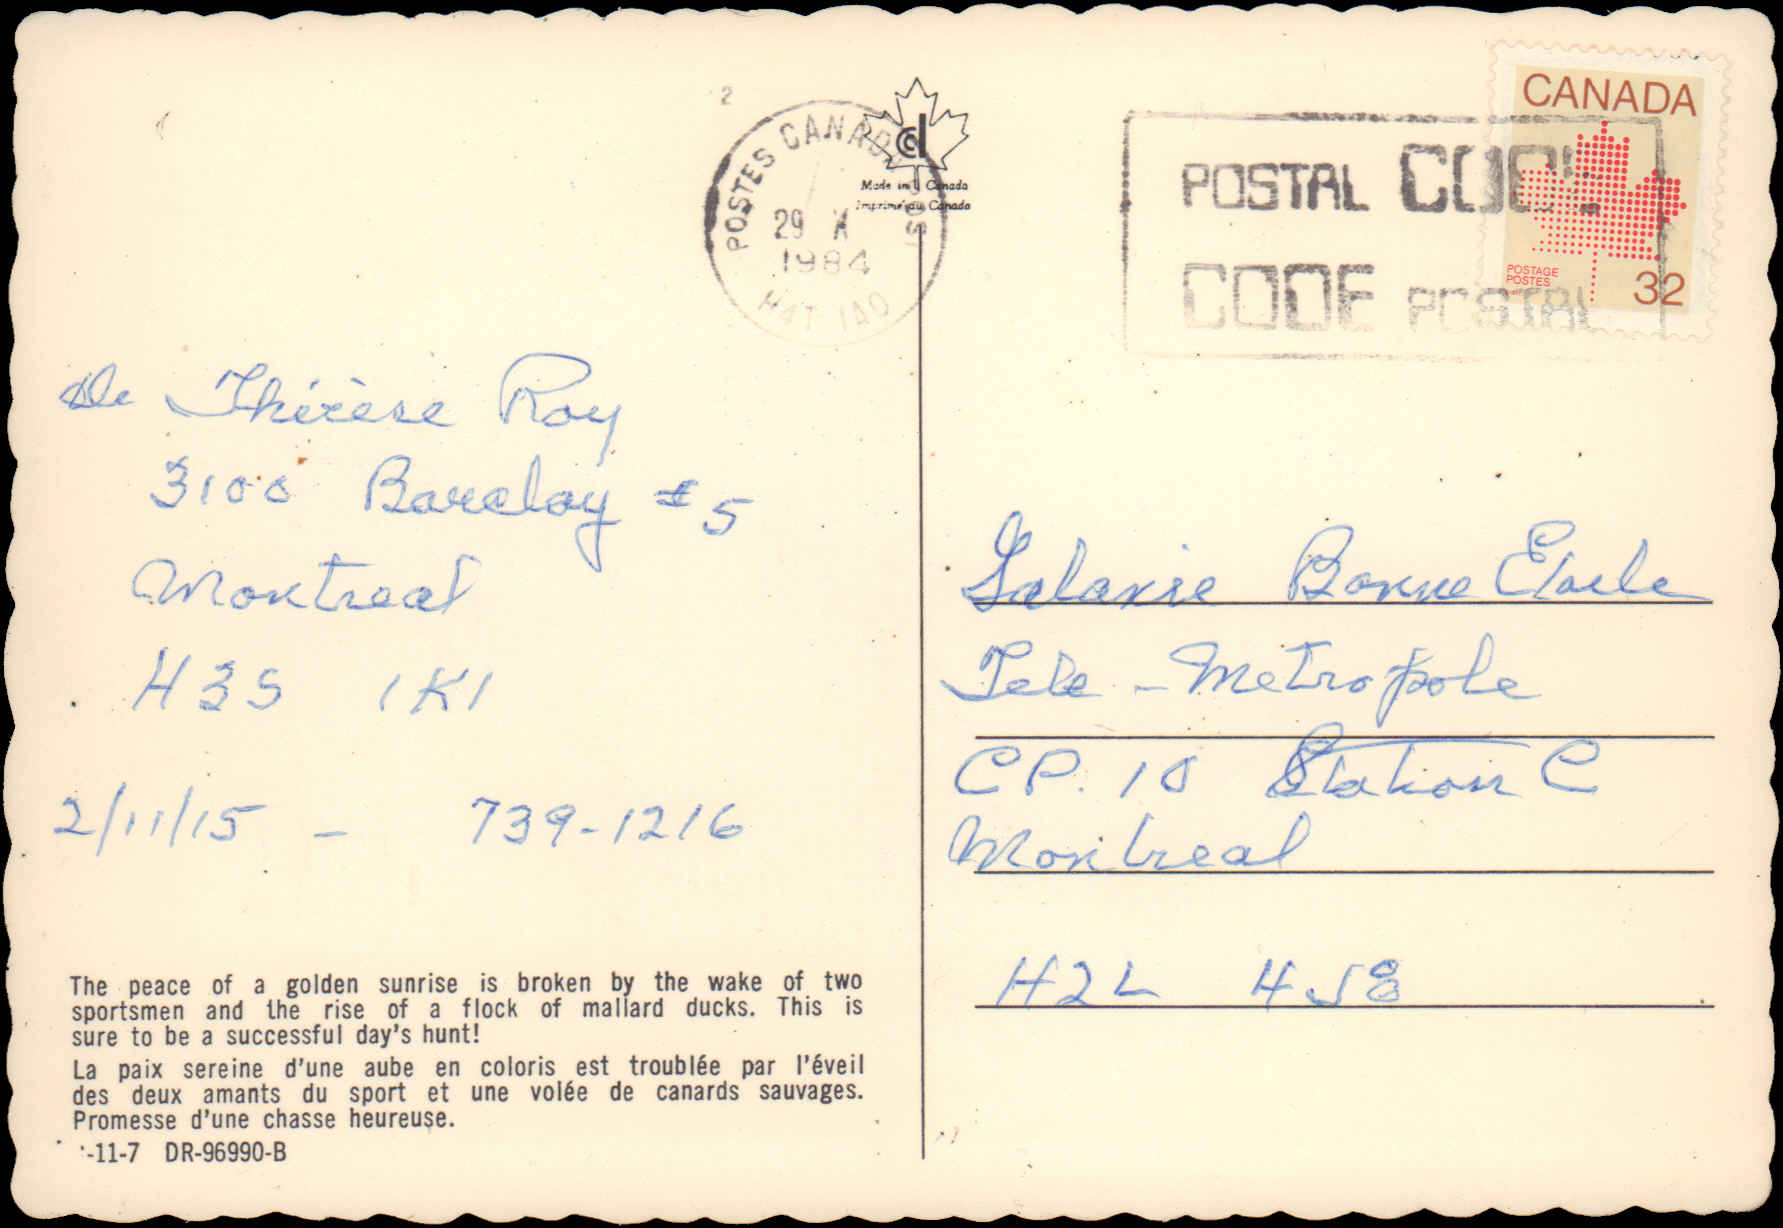 2
POSTES CANADA POST
29 X
1984
H4T 1A0
Made in Canada
Imprimé au Canada
POSTAL CODE
CODE POSTAL
CANADA
POSTAGE
POSTES
32
De Thérèse Roy
3100 Barclay #5
Montreal
H3S 1K1
2/11/15 - 739-1216
Bonne Etoile
Tele-Metropole
CP. 10 Station C
Montreal
H2L 4J8
The peace of a golden sunrise is broken by the wake of two
sportsmen and the rise of a flock of mallard ducks. This is
sure to be a successful day's hunt!
La paix sereine d'une aube en coloris est troublée par l'éveil
des deux amants du sport et une volée de canards sauvages.
Promesse d'une chasse heureuse.
-11-7 DR-96990-B